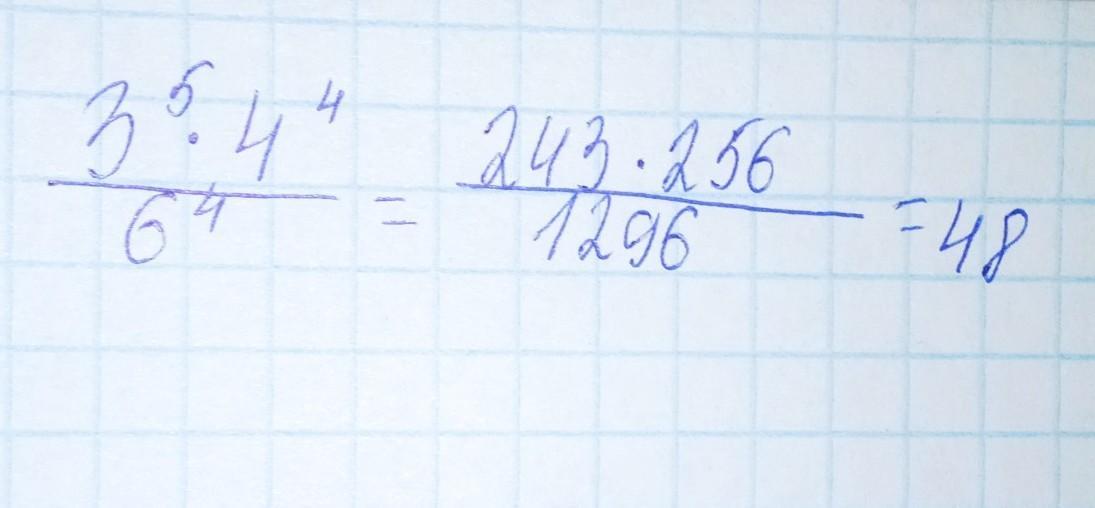 3⁵ · 4⁴ / 6⁴ = 243 · 256 / 1296 = 48